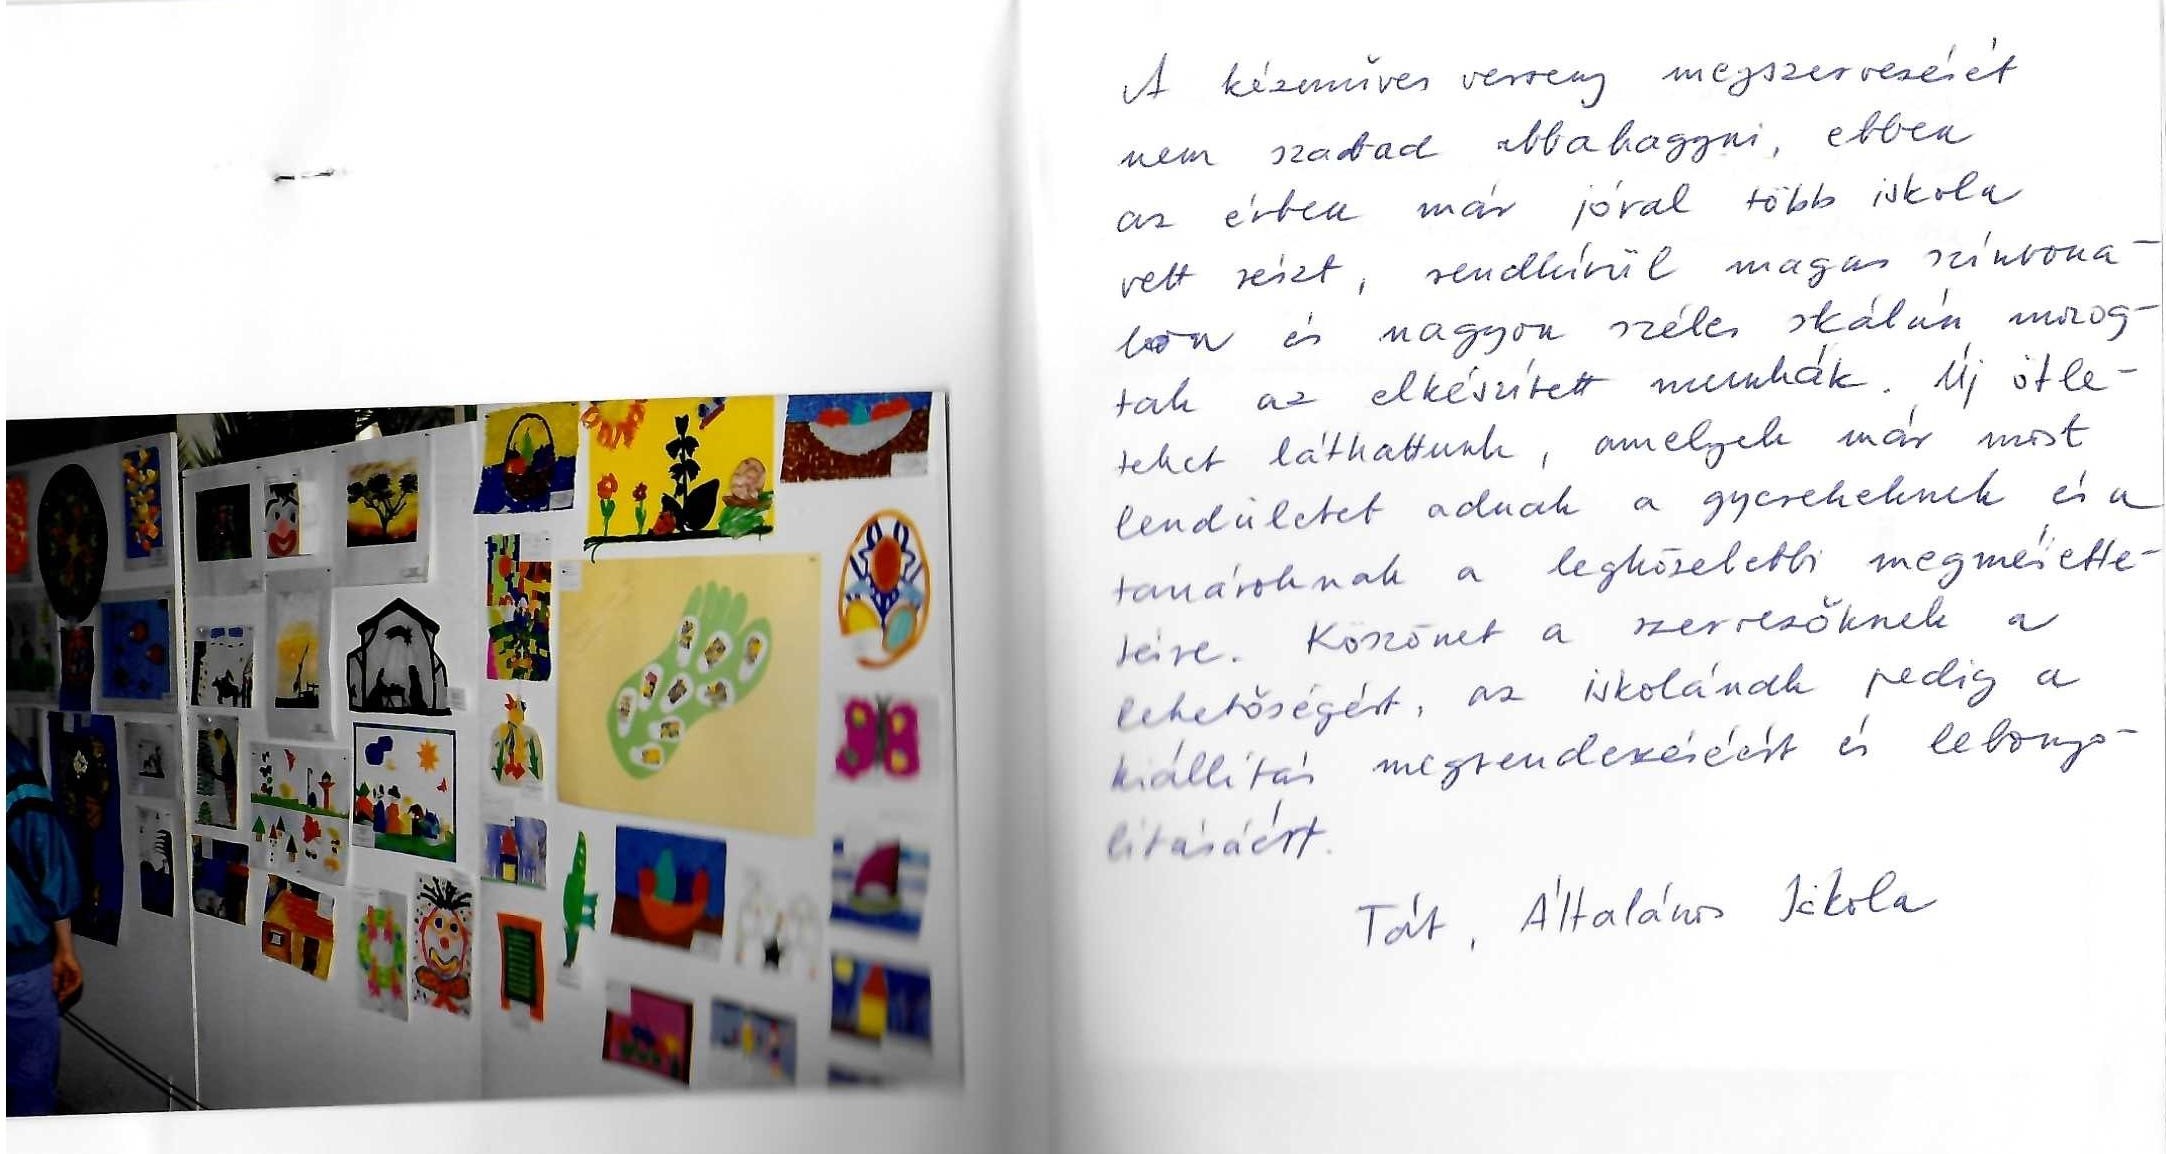 A kézműves verseny megszervezését
nem szabad abbahagyni, ebben
az évben már jóval több iskola
vett részt, rendkívül magas színvona-
lon és nagyon széles skálán mozog-
tak az elkészített munkák. Új ötle-
teket láthattunk, amelyek már most
lendületet adnak a gyerekeknek és a
tanároknak a legközelebbi megmérette-
tésre. Köszönet a szervezőknek a
lehetőségért, az iskolának pedig a
kiállítás megrendezéséért és lebonyo-
lításáért.
Tát, Általános Iskola